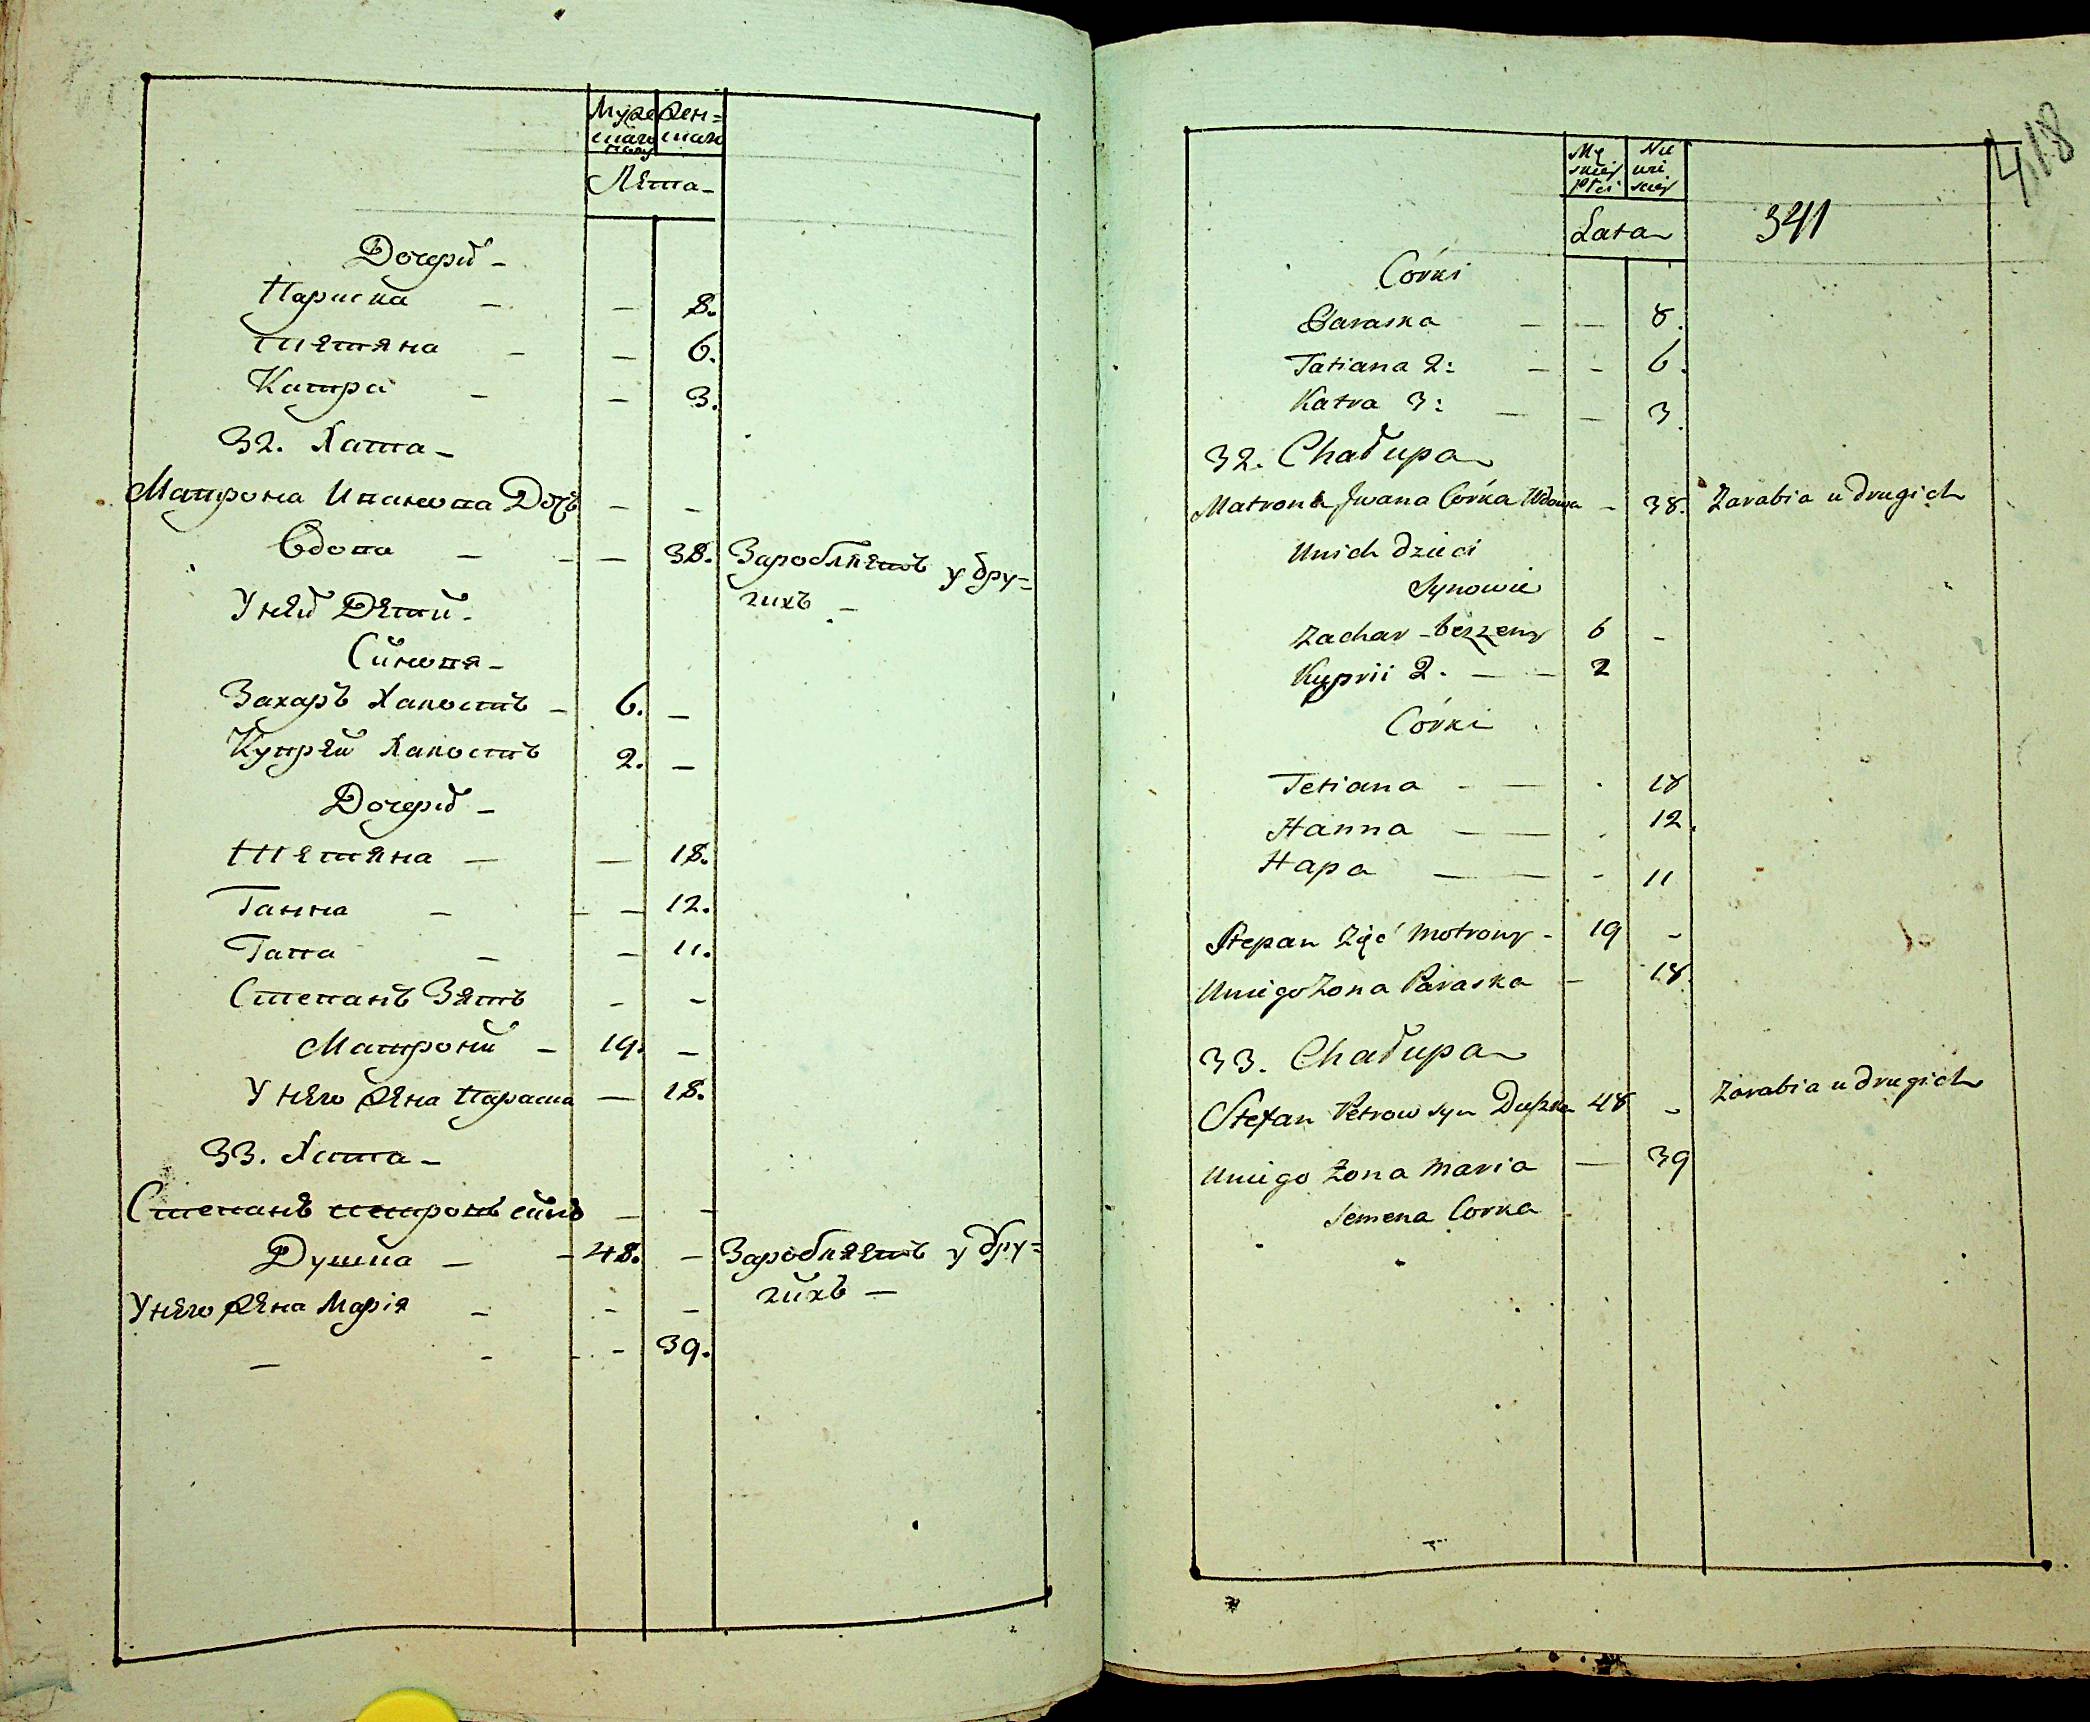 Муже Жен=
скаго скаго
полу
Лѣта
Дочерѣ
Параска 8.
Тетяна 6.
Катра 3.
32. Хата
Матрона Иванова Дочь
Вдова 38. Заробляетъ у дру=
гихъ
У ней Дети
Сынове
Захаръ Холостъ 6.
Купрей Холостъ 2.
Дочерѣ
Тетяна 18.
Ганна 12.
Гапа 11.
Степанъ Зять
Матроны 19.
У него Жена Параска 18.
33. Хата
Степанъ Петровъ сынъ
Душка 48. Заробляетъ у дру=
гихъ
У него Жена Марія
39.
418
Mę Nie
skiej wie
płci sciej
Lata 341
Córki
Paraska 8.
Tatiana 2: 6.
Katra 3: 3.
32. Chałupa
Matrona Jwana Córka Wdowa 38. Zarabia u drugich
Unich dzieci
Synowie
Zachar bezzeny 6
Kuprii 2. 2
Córki
Tetiana 18
Hanna 12.
Hapa 11
Stepan Zięć Motrony 19
Uniego Zona Paraska 18.
33. Chałupa
Stefan Petrow syn Duszka 48 Zarabia u drugich
Uniego Zona Maria 39
Semena Corka